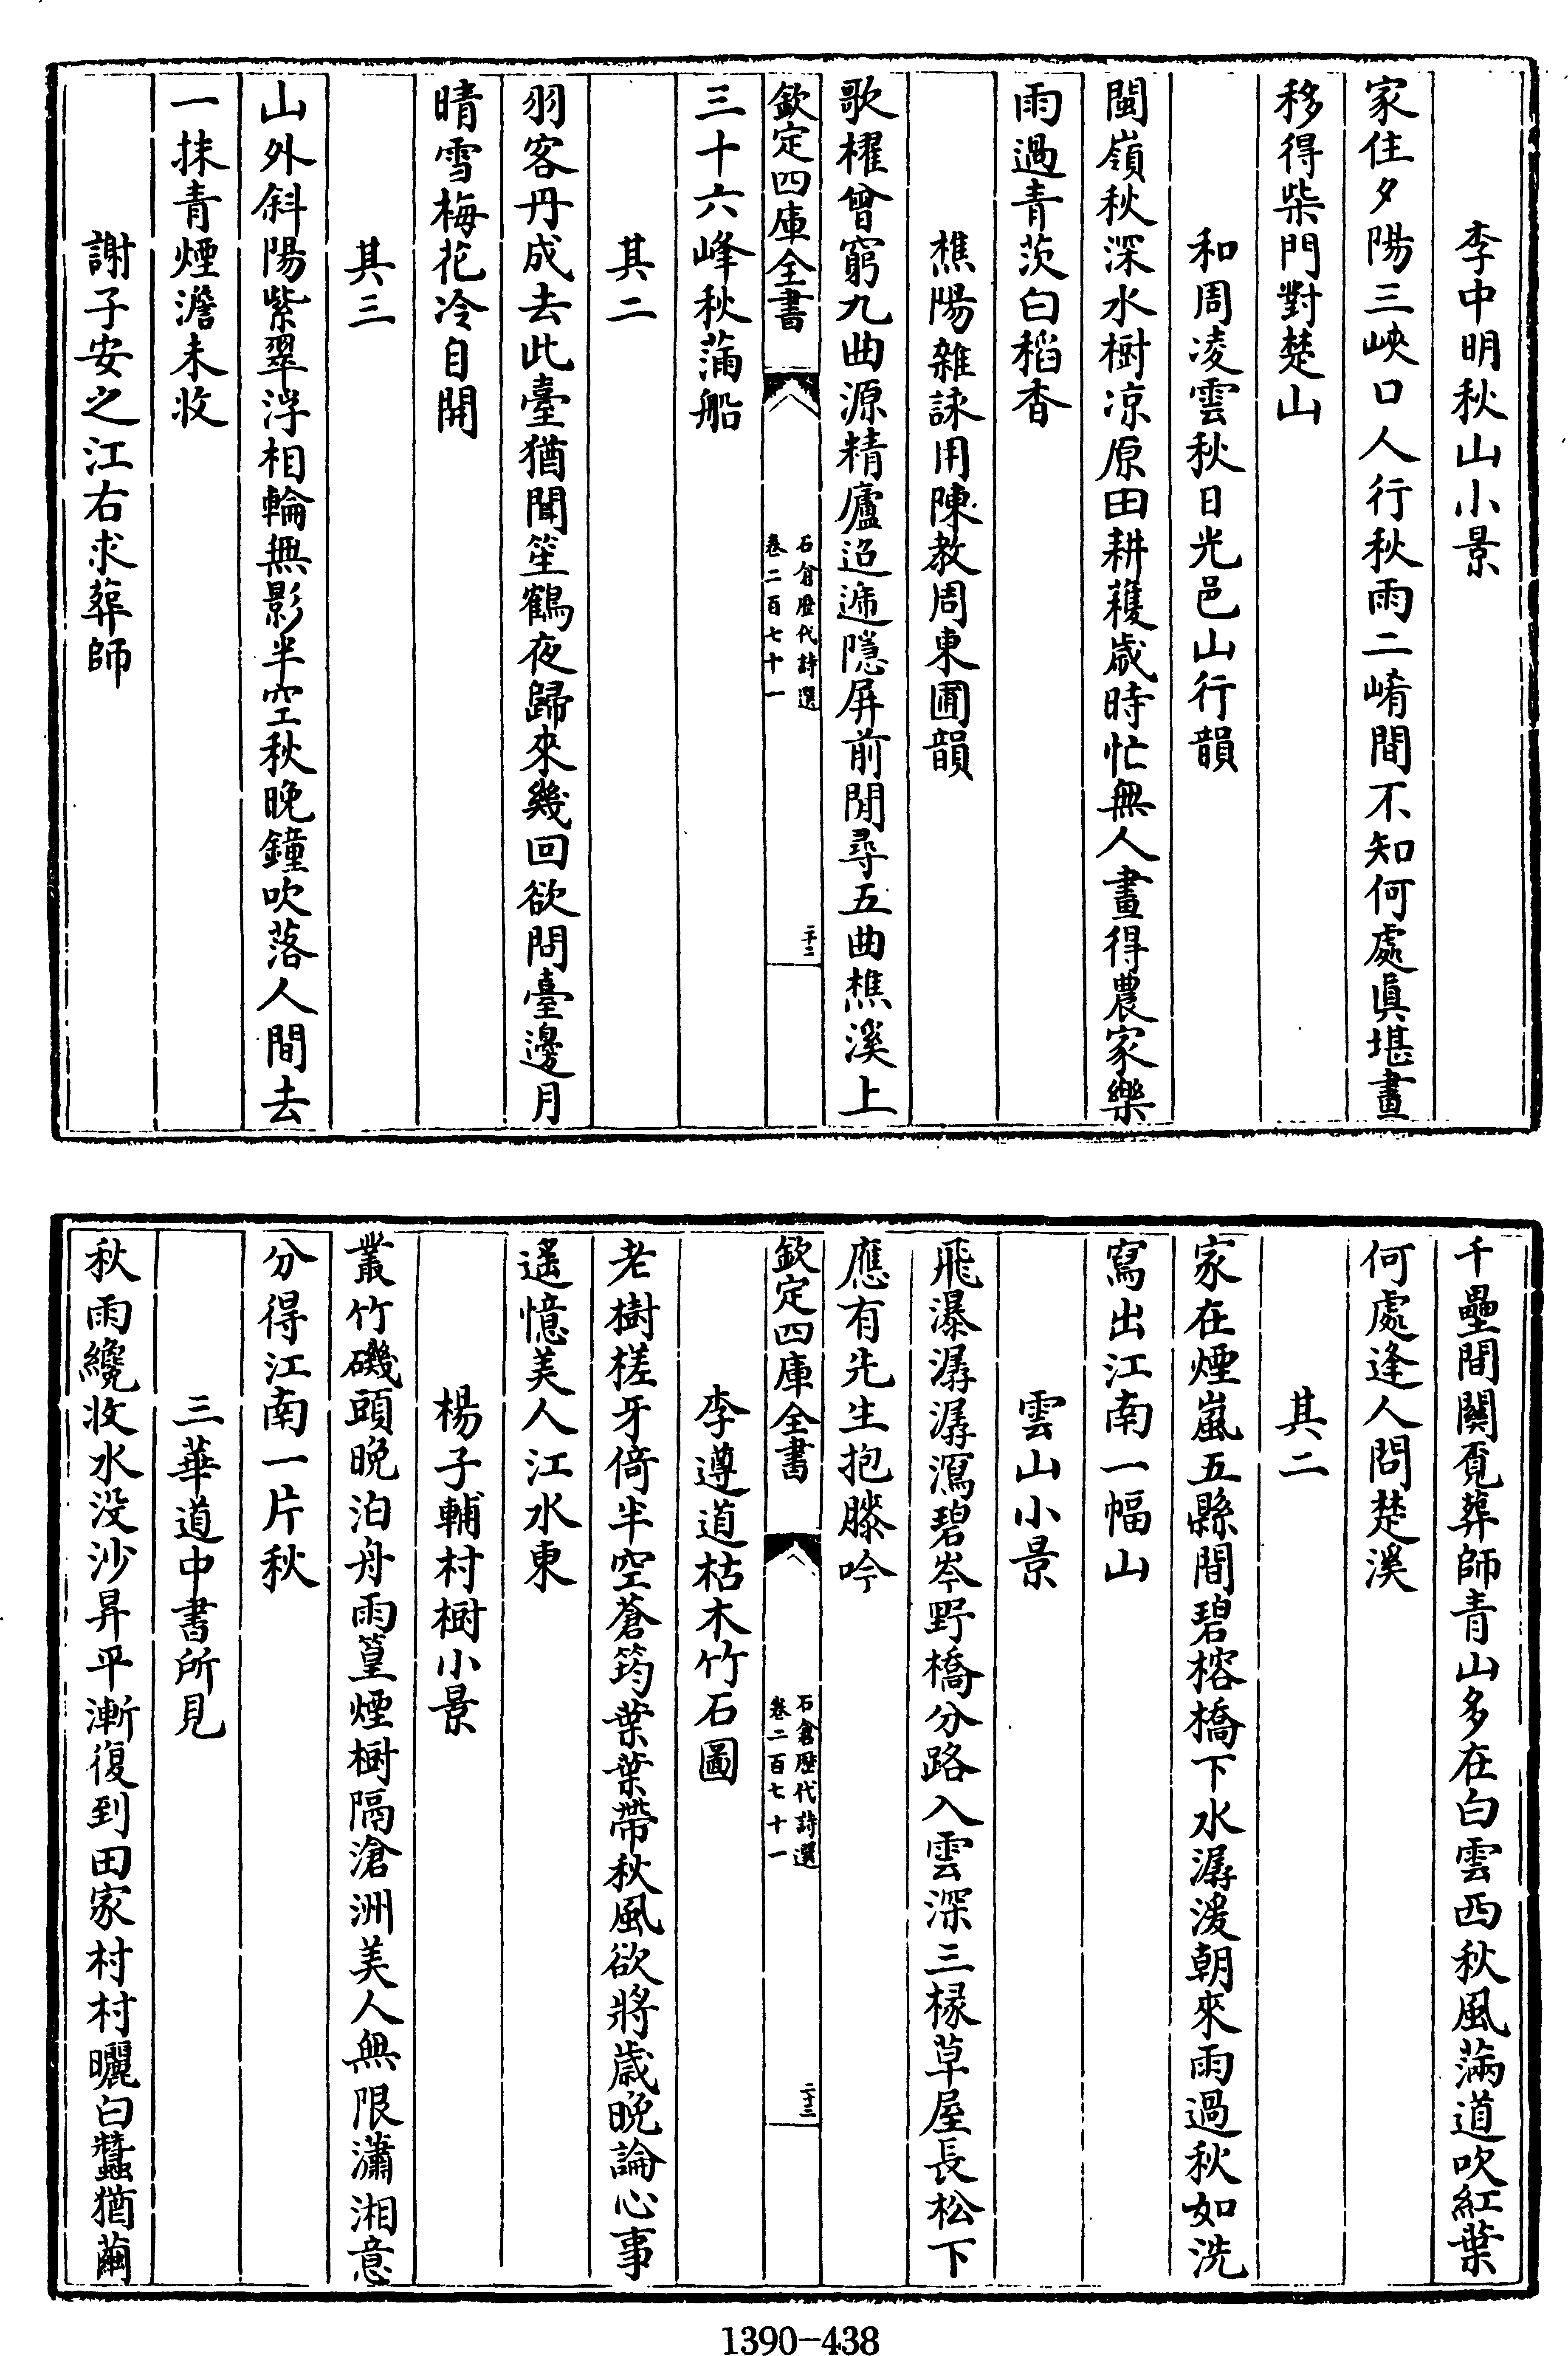 李中明秋山小景
家住夕陽三峽口人行秋雨二崤間不知何處眞堪畫
移得柴門對楚山
和周凌雲秋日光邑山行韻
閩嶺秋深水樹凉原田耕穫歲時忙無人畫得農家樂
雨過青茨白稻香
樵陽雜詠用陳教周東圃韻
歌櫂曾窮九曲源精廬迢遞隱屏前閒尋五曲樵溪上
欽定四庫全書
石倉歷代詩選
卷二百七十一
二十二
三十六峰秋滿船
其二
羽客丹成去此臺猶聞笙鶴夜歸來幾回欲問臺邊月
晴雪梅花冷自開
其三
山外斜陽紫翠浮相輪無影半空秋晚鐘吹落人間去
一抹青煙澹未收
謝子安之江右求葬師
千壘間關覓葬師青山多在白雲西秋風滿道吹紅葉
何處逢人問楚溪
其二
家在煙嵐五縣間碧榕橋下水潺湲朝來雨過秋如洗
寫出江南一幅山
雲山小景
飛瀑潺潺瀉碧岑野橋分路入雲深三椽草屋長松下
應有先生抱膝吟
欽定四庫全書
石倉歷代詩選
卷二百七十一
二十三
李遵道枯木竹石圖
老樹槎牙倚半空蒼筠葉葉帶秋風欲將歲晚論心事
遙憶美人江水東
楊子輔村樹小景
叢竹磯頭晚泊舟雨篁煙樹隔滄洲美人無限瀟湘意
分得江南一片秋
三華道中書所見
秋雨纔收水没沙昇平漸復到田家村村曬白蠶猶繭
1390-438